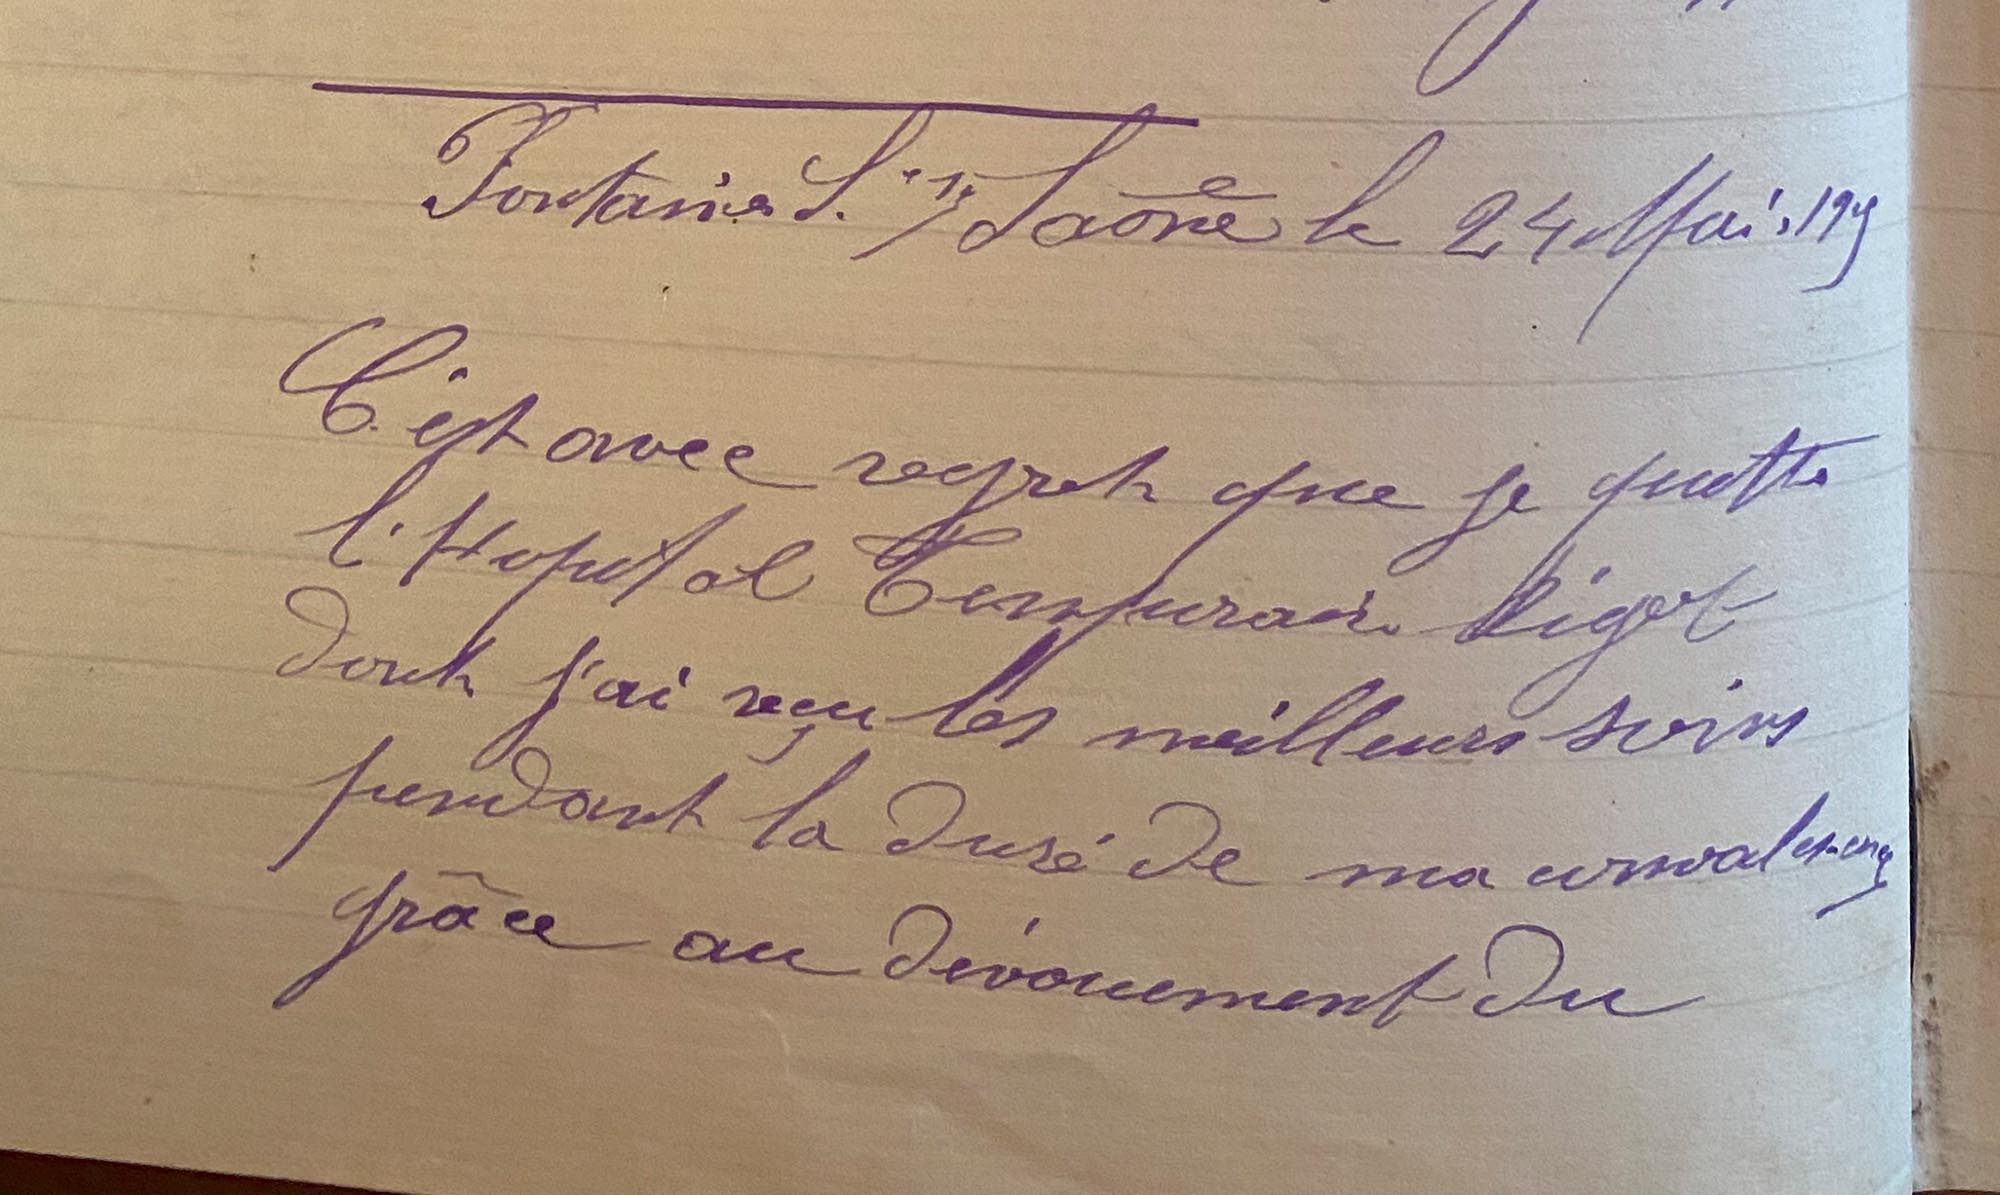 Fontaines S. Saône le 24 Mai 19
C'est avec regret que je quitte
l'Hopital Temporair Rigot
dont j'ai reçu les meilleurs soins
pendant la duré de ma convalescence
grâce au dévouement du